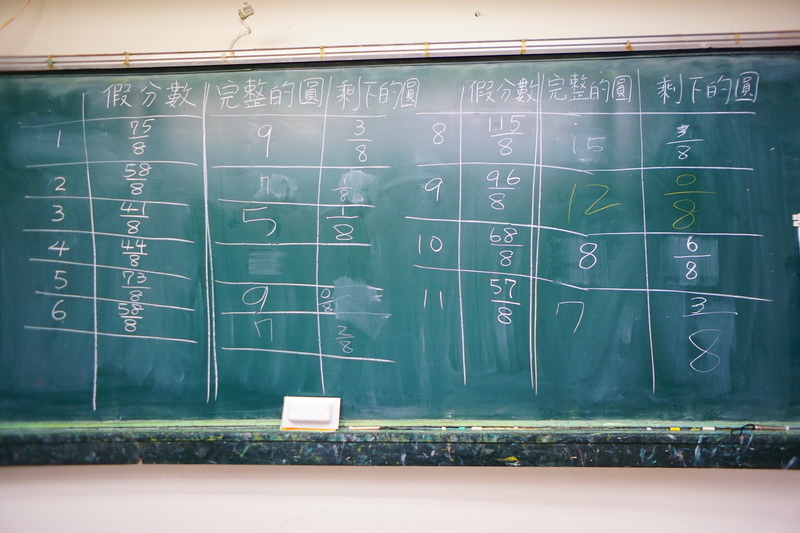 假分數 完整的圓 剩下的圓
1 75/8 9 3/8
2 58/8 7 /8
3 41/8 5 1/8
4 44/8
5 73/8 9 0/8
6 58/8 7 2/8
假分數 完整的圓 剩下的圓
8 115/8 15 /8
9 96/8 12 0/8
10 68/8 8 6/8
11 57/8 7 3/8